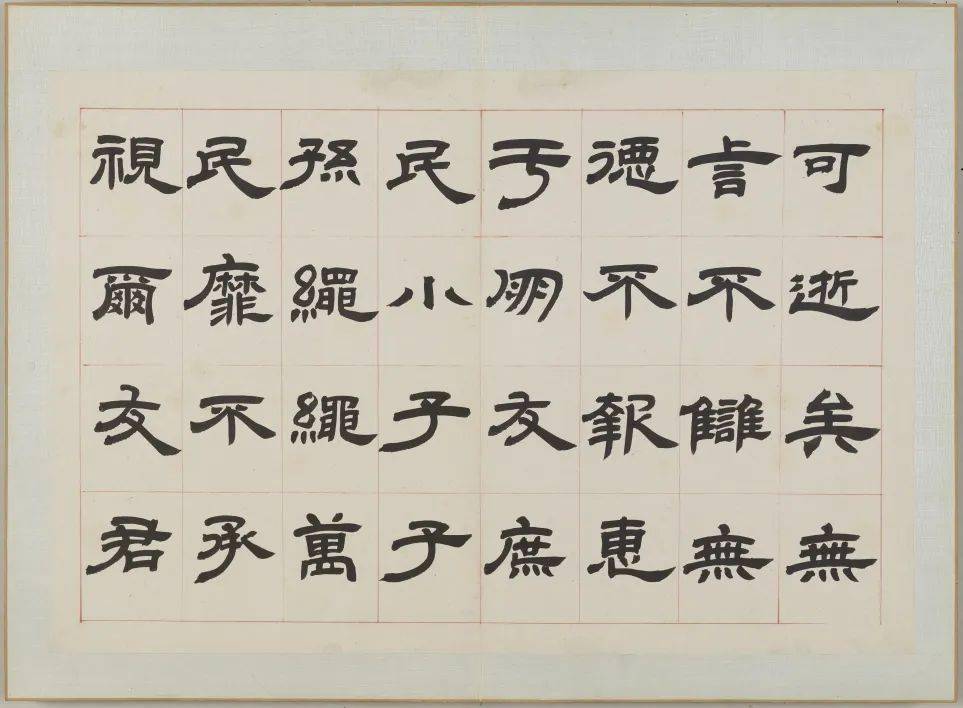 可逝矣無
言不讎無
德不報惠
于朋友庶
民小子子
孫繩繩萬
民靡不承
視爾友君